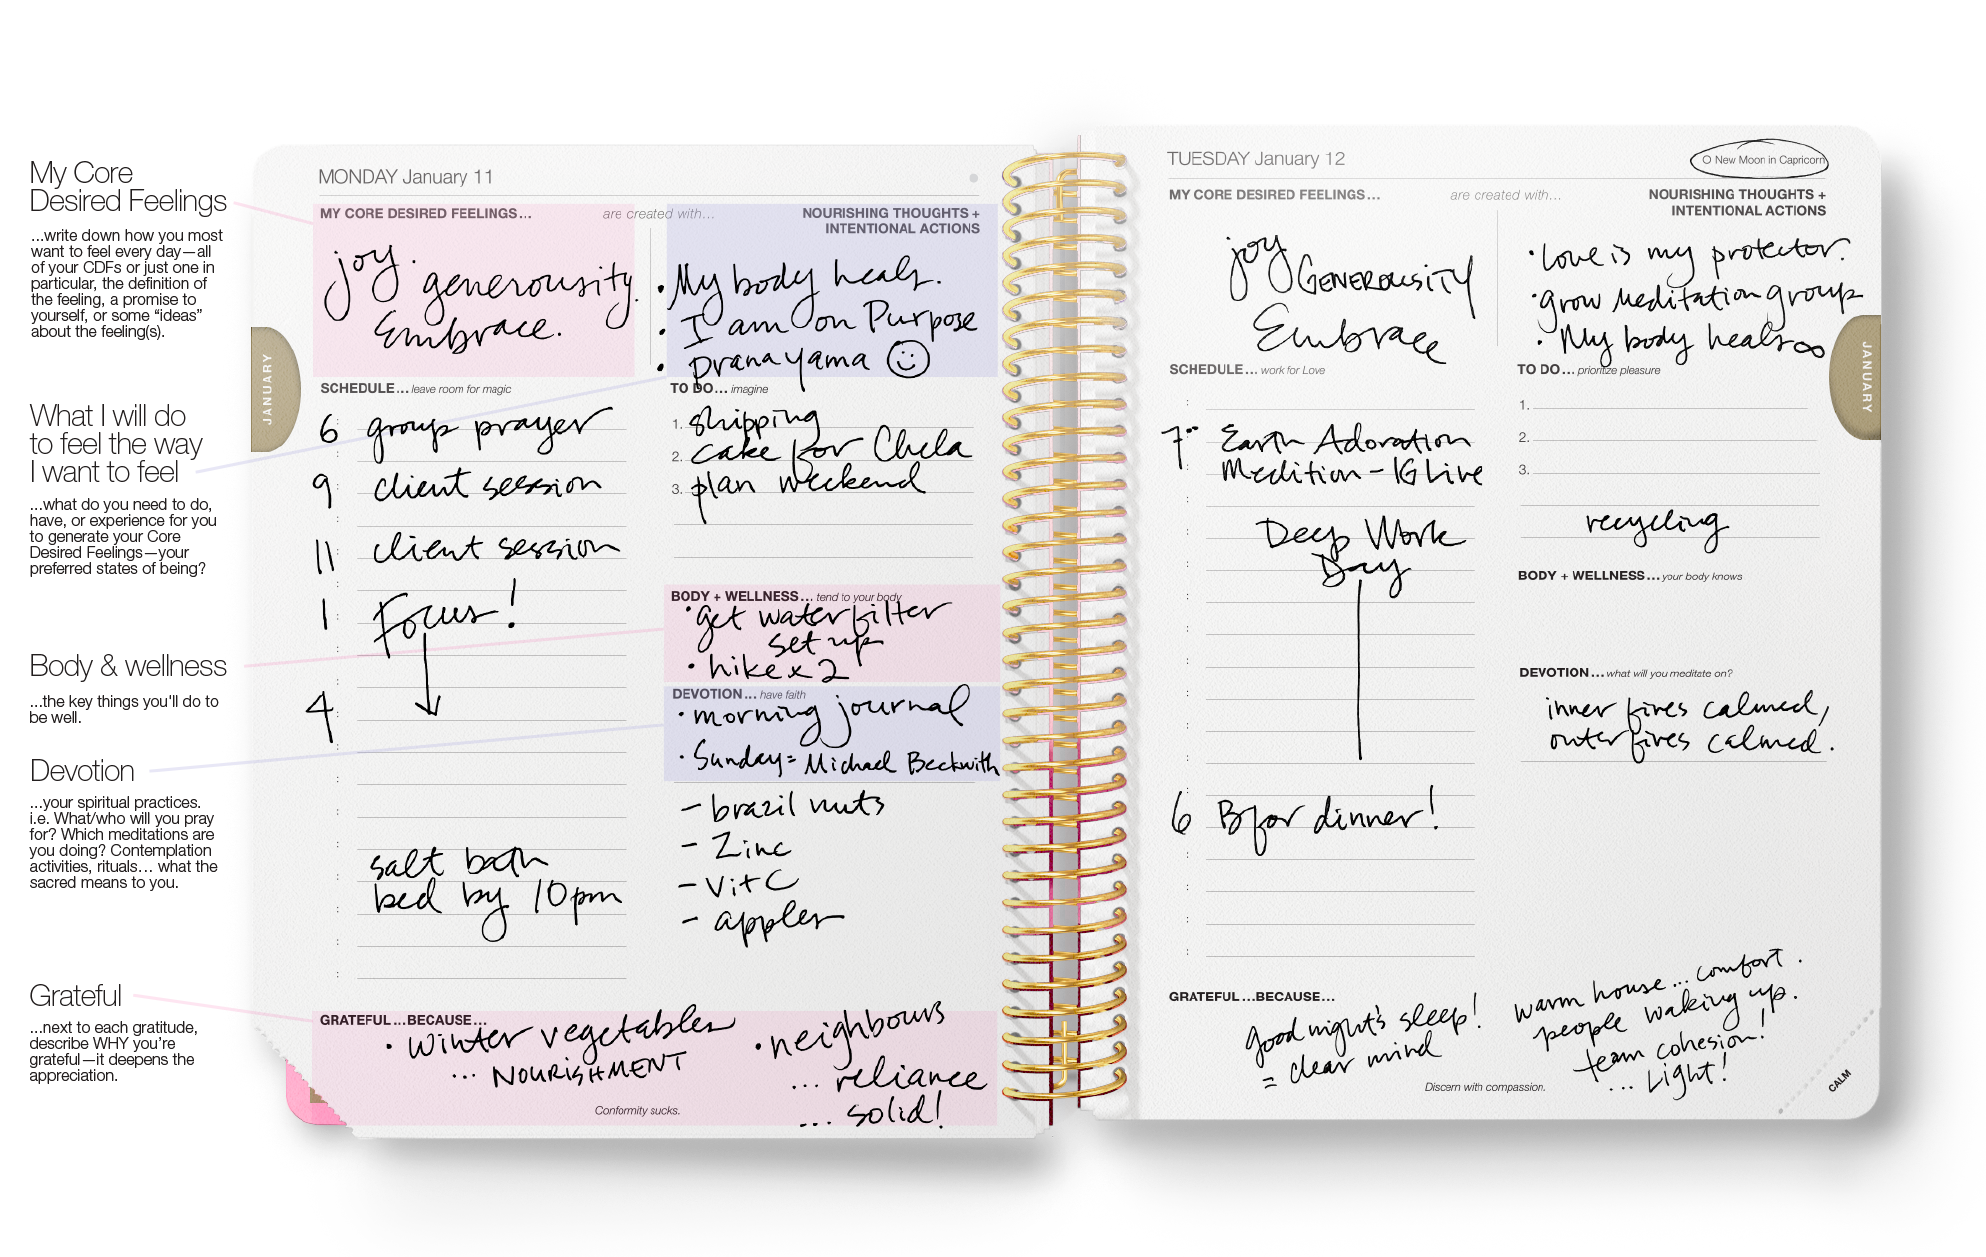 My Core
Desired Feelings
...write down how you most
want to feel every day—all
of your CDFs or just one in
particular, the definition of
the feeling, a promise to
yourself, or some “ideas”
about the feeling(s).
What I will do
to feel the way
I want to feel
...what do you need to do,
have, or experience for you
to generate your Core
Desired Feelings—your
preferred states of being?
Body & wellness
...the key things you'll do to
be well.
Devotion
...your spiritual practices.
i.e. What/who will you pray
for? Which meditations are
you doing? Contemplation
activities, rituals... what the
sacred means to you.
Grateful
...next to each gratitude,
describe WHY you’re
grateful—it deepens the
appreciation.
JANUARY
MONDAY January 11
MY CORE DESIRED FEELINGS...
are created with...
NOURISHING THOUGHTS +
INTENTIONAL ACTIONS
joy.
generousity.
Embrace.
• My body heals.
• I am on Purpose
• pranayama ☺
SCHEDULE... leave room for magic
6 group prayer
9 client session
11 client session
1 Focus!
4
salt bath
bed by 10pm
TO DO... imagine
1. shipping
2. cake for Chela
3. plan weekend
BODY + WELLNESS... tend to your body
• get water filter
set up
• hike x 2
DEVOTION... have faith
• morning journal
• Sunday = Michael Beckwith
– brazil nuts
– Zinc
– Vit C
– apples
GRATEFUL...BECAUSE...
• winter vegetables
... NOURISHMENT
• neighbours
... reliance
... solid!
Conformity sucks.
TUESDAY January 12
O New Moon in Capricorn
MY CORE DESIRED FEELINGS...
are created with...
NOURISHING THOUGHTS +
INTENTIONAL ACTIONS
joy
GENEROUSITY
Embrace
• Love is my protector.
• grow meditation group
• My body heals ∞
JANUARY
SCHEDULE... work for Love
7:00 Earth Adoration
Medition – IG Live
Deep Work
Day
6 B for dinner!
TO DO... prioritize pleasure
1.
2.
3.
recycling
BODY + WELLNESS... your body knows
DEVOTION... what will you meditate on?
inner fires calmed,
outer fires calmed.
GRATEFUL...BECAUSE...
good night's sleep!
= clear mind
warm house... comfort.
people waking up.
team cohesion!
... Light!
Discern with compassion.
CALM